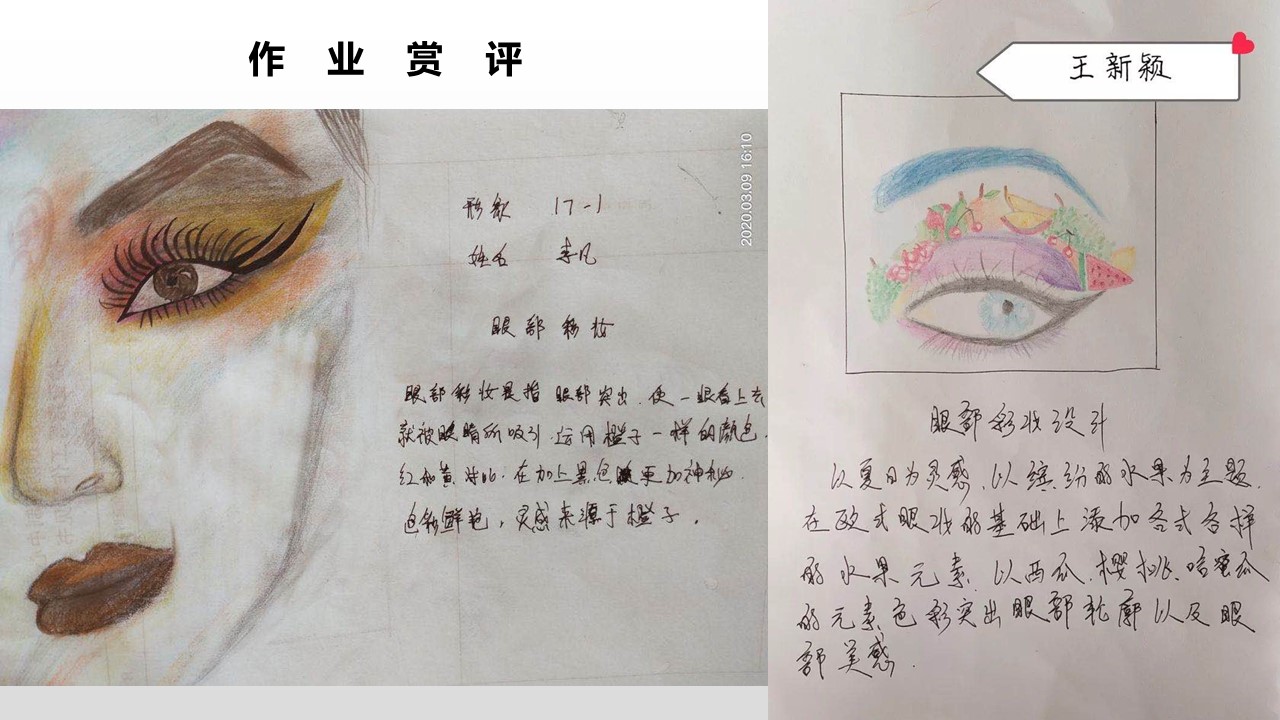 作业赏评
形象 17-1
姓名 李凡
眼部彩妆
眼部彩妆是指 眼部突出.使一眼看上去
就被眼睛所吸引.运用橙子一样的颜色.
红和黄对比.在加上黑色眼更加神秘.
色彩鲜艳，灵感来源于橙子.
2020.03.09 16:10
王新颖
眼部彩妆设计
以夏日为灵感.以缤纷的水果为主题.
在欧式眼妆的基础上添加各式各样
的水果元素.以西瓜.樱桃.哈蜜瓜
的元素色彩突出眼部轮廓以及眼
部美感.